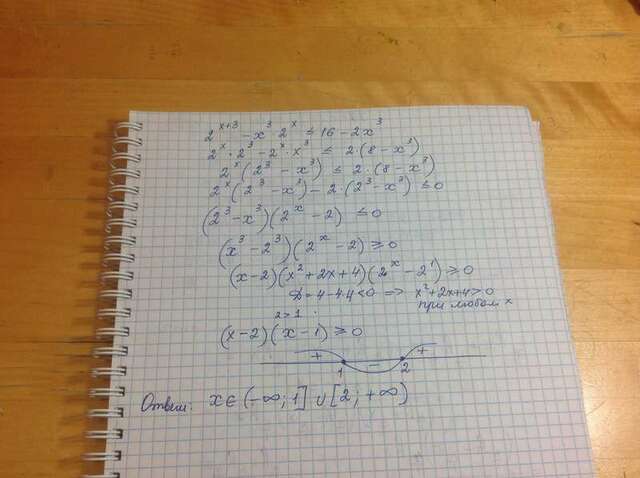 2^(x+3) - x^3 · 2^x ≤ 16 - 2x^3
2^x · 2^3 - 2^x · x^3 ≤ 2·(8 - x^3)
2^x (2^3 - x^3) ≤ 2·(8 - x^3)
2^x (2^3 - x^3) - 2·(2^3 - x^3) ≤ 0
(2^3 - x^3)(2^x - 2) ≤ 0
(x^3 - 2^3)(2^x - 2) ≥ 0
(x-2)(x^2 + 2x + 4)(2^x - 2^1) ≥ 0
D = 4 - 4·4 < 0 => x^2 + 2x + 4 > 0
при любом x
2 > 1
(x-2)(x-1) ≥ 0
+ - +
1 2
Ответ: x ∈ (-∞; 1] ∪ [2; +∞)